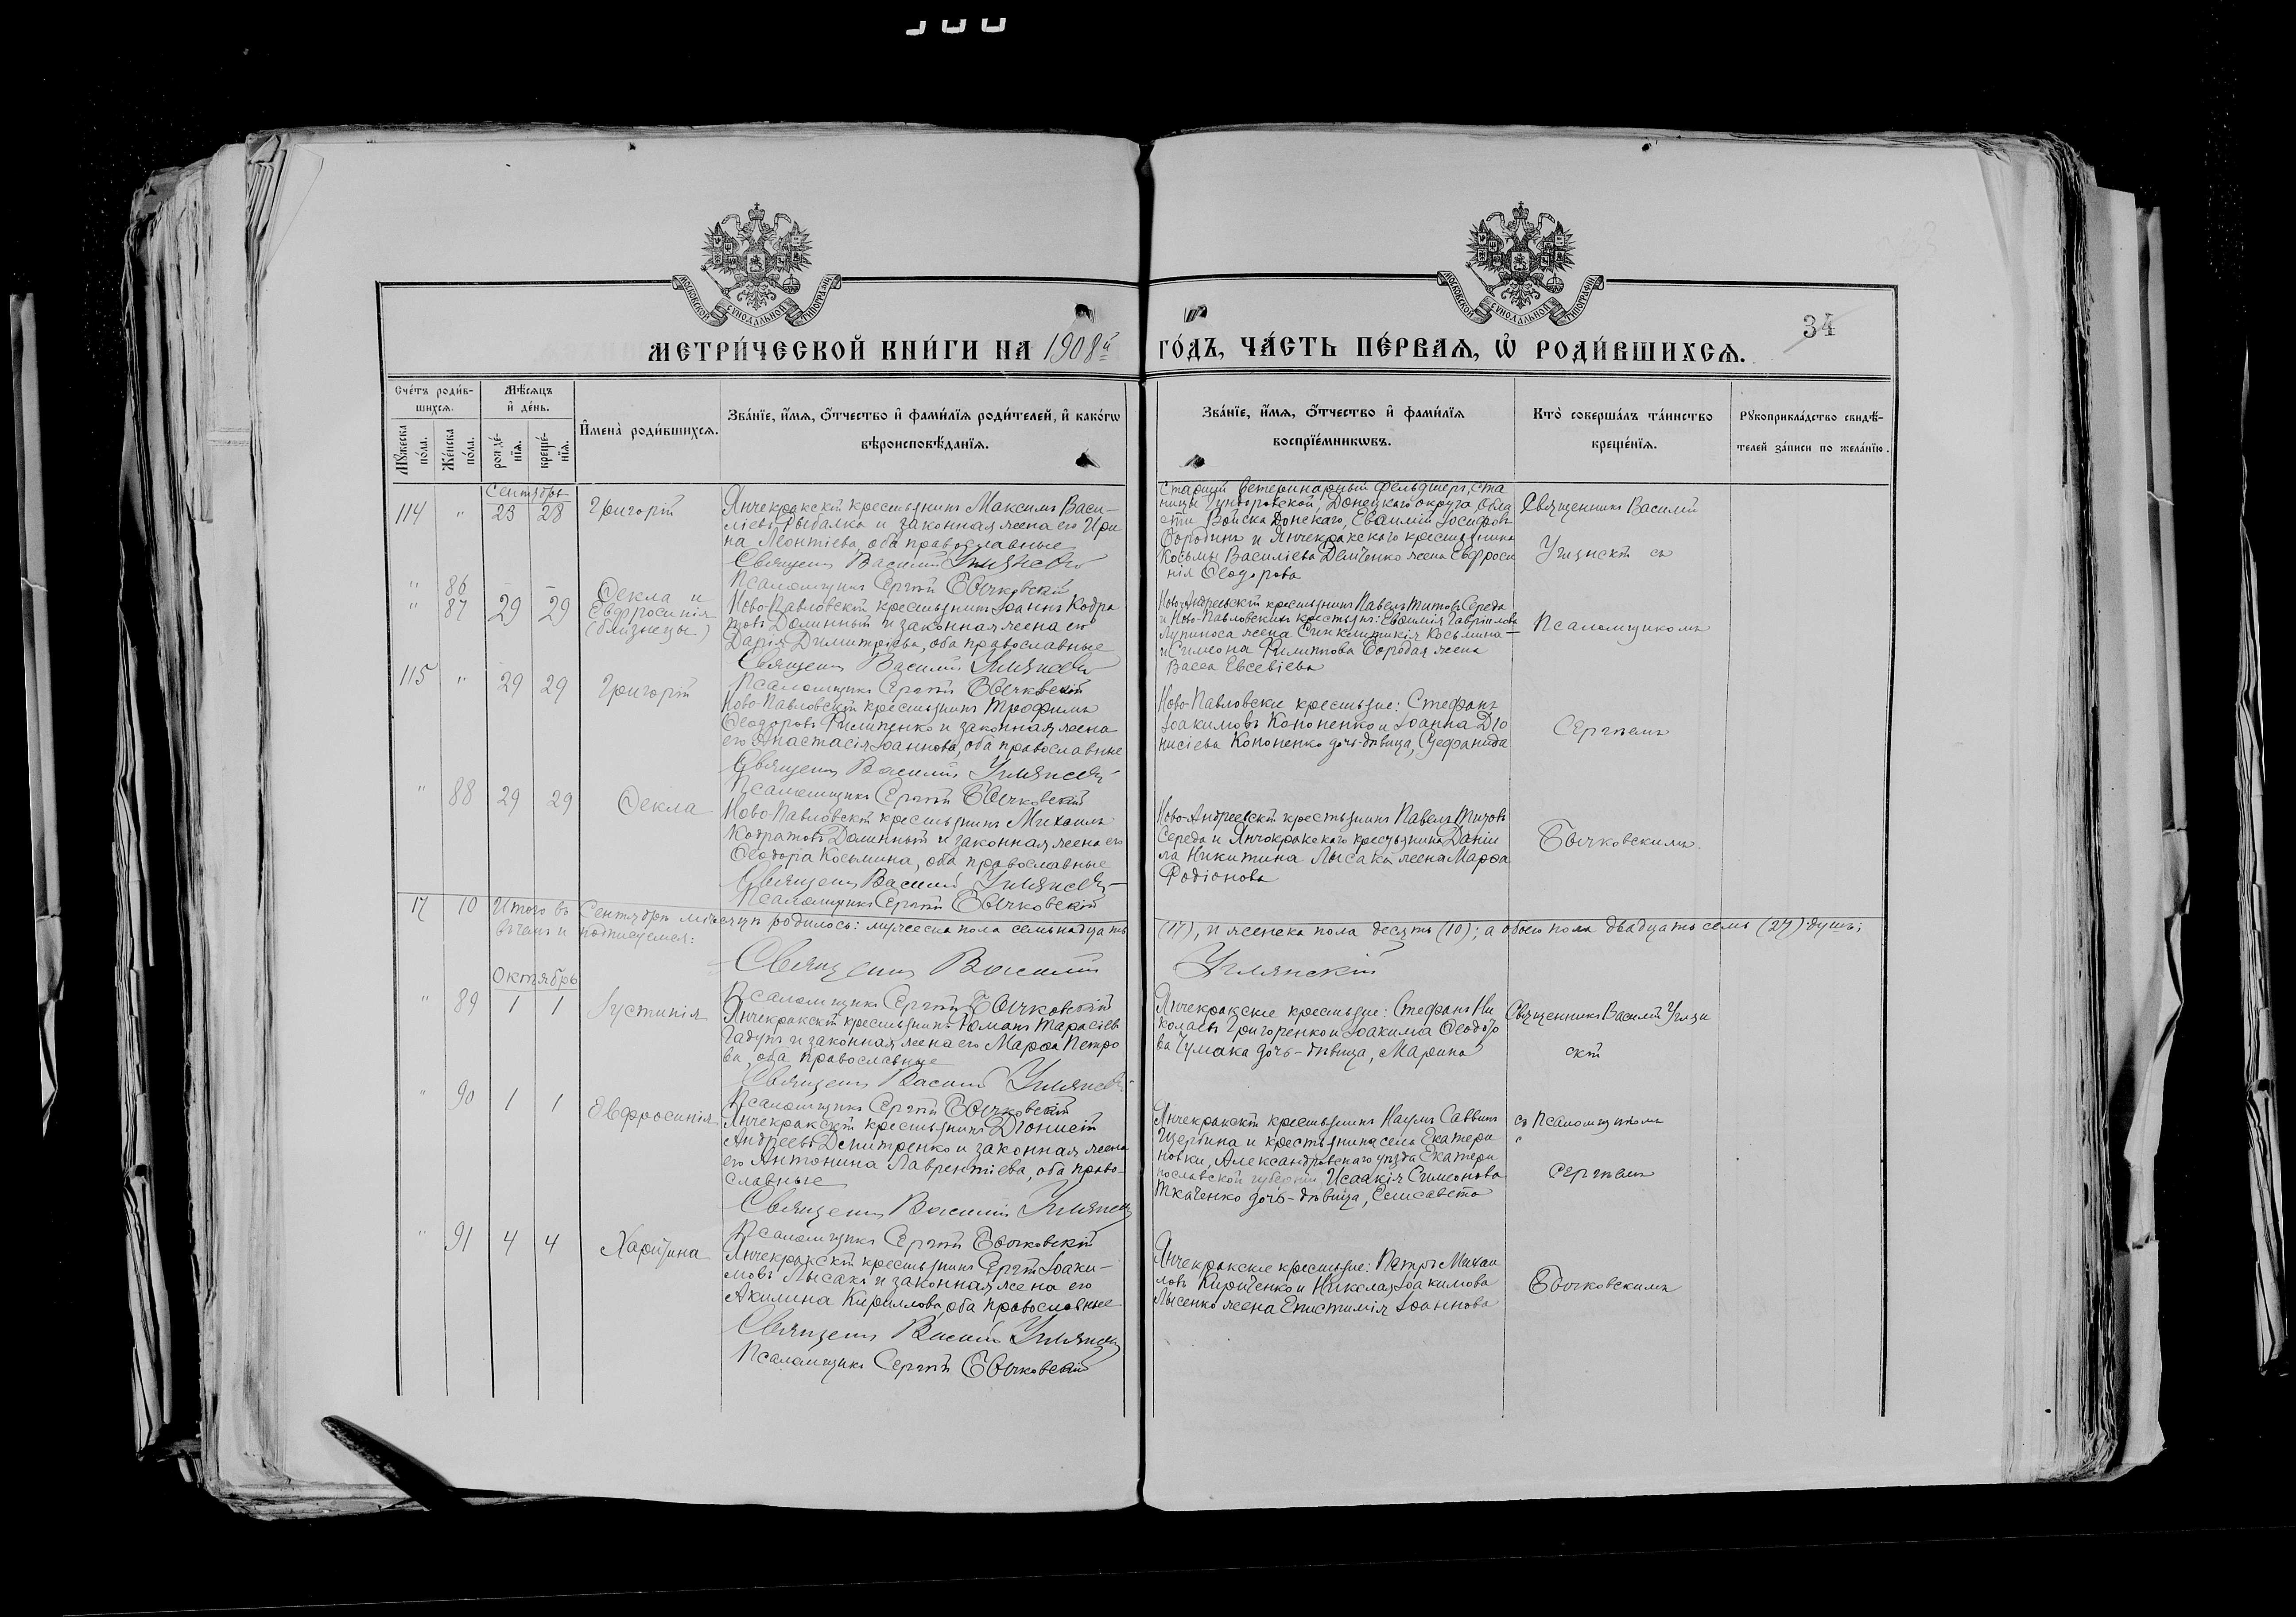 МОСКОВСКОЙ СѴНОДАЛЬНОЙ ТИПОГРАФІИ
МОСКОВСКОЙ СѴНОДАЛЬНОЙ ТИПОГРАФІИ
34
МЕТРИ́ЧЕСКОЙ КНИ́ГИ НА 1908й ГО́ДЪ, ЧА́СТЬ ПЕ́РВАѦ, Ѡ҆ РОДИ́ВШИХСѦ.
Сче́тъ роди́в-
шихсѧ.
Мꙋ́жеска по́ла.
Же́нска по́ла.
Мѣ́сѧцъ
и҆ де́нь.
рожде́-
нїѧ.
креще́-
нїѧ.
И҆мена̀ роди́вшихсѧ.
Зва́нїе, и҆́мѧ, ѻ҆́тчество и҆ фами́лїѧ роди́телей, и҆ како́гѡ
вѣроисповѣ́данїѧ.
Зва́нїе, и҆́мѧ, ѻ҆́тчество и҆ фами́лїѧ
воспрїе́мникѡвъ.
Кто̀ соверша́лъ та́инство
креще́нїѧ.
Рꙋкоприкла́дство свидѣ́-
телей за́писи по жела́нїю.
Сентябрь
114 " 23 28 Григорій
Янчекракскій крестьянинъ Максимъ Васи-
ліевъ Рыбалка и законная жена его Ири
на Леонтіева, оба православные
Священн Василій Уманскій
Псаломщикъ Сергѣй Бычковскій
Старшій ветеринарный фельдшеръ, ста
ницы Гундоровской, Донецкаго округа Обла
сти Войска Донскаго, Евѳимій Іосифовъ
Бородинъ и Янчекракского крестьянина
Косьмы Василіева Демченко жена Евфроси
нія Ѳеодорова
Священникъ Василій
съ
" 86
" 87 29 29 Ѳекла и
Евфросинія
(близнецы)
Ново-Павловскій крестьянинъ Іоаннъ Кодра
товъ Долинный и законная жена его
Дарія Димитріева, оба православные
Священн Василій
Псаломщикъ Сергѣй Бычковскій
Ново-Андреевскій крестьянинъ Павелъ Титовъ Середа
и Ново-Павловскихъ крестьянъ: Евѳимія Гавріилова
жена Синклитикія Косьмина
и Симеона Филиппова Бородая жена
Васса Евсевіева
Псаломщикомъ
115 " 29 29 Григорій
Ново-Павловскій крестьянинъ Трофимъ
Ѳеодоровъ Филипенко и законная жена
его Анастасія Іоаннова, оба православные
Священн Василій
Псаломщикъ Сергѣй Бычковскій
Ново-Павловскіе крестьяне: Стефанъ
Іоакимовъ Кононенко и Іоанна Діо
нисіева Кононенко дочь-дѣвица, Стефанида
Сергѣемъ
" 88 29 29 Ѳекла
Ново-Павловскій крестьянинъ Михаилъ
Кодратовъ Долинный и законная жена его
Ѳеодора Косьмина, оба православные
Священн Василій
Псаломщикъ Сергѣй Бычковскій
Ново-Андреевскій крестьянинъ Павелъ Титовъ
Середа и Янчекракского крестьянина Даніи
ла Никитина Лысака жена Марѳа
Родіонова
Бычковскимъ.
17 10 Итого въ Сентябрѣ мѣсяцѣ родилось: мужеска пола семьнадцать (17), и женска пола десять (10); а обоего пола двадцать семь (27) душъ;
въ чемъ и подписуемся:
Священн Василій
Псаломщикъ Сергѣй Бычковскій
Октябрь
" 89 1 1 Іустинія
Янчекракскій крестьянинъ Романъ Тарасіевъ
и законная жена его Марѳа Петро
ва, оба православные
Священн Василій
Псаломщикъ Сергѣй Бычковскій
Янчекракскіе крестьяне: Стефанъ Ни
колаевъ Григоренко и Іоакима Ѳеодоро
ва Чумака дочь-дѣвица, Марина
Священникъ Василій
скій
" 90 1 1 Евфросинія
Янчекракскій крестьянинъ Діонисій
Андреевъ Демитренко и законная жена
его Антонина Лаврентіева, оба право-
славные
Священн Василій
Псаломщикъ Сергѣй Бычковскій
Янчекракскій крестьянинъ Наумъ Саввинъ
Щербина и крестьянина села Екатери
новки, Александровскаго уѣзда Екатери
нославской губерніи, Исаакія Симеонова
Ткаченко дочь-дѣвица, Елисавета
съ Псаломщикомъ
Сергѣемъ
" 91 4 4 Харитина
Янчекракскій крестьянинъ Сергѣй Іоаки-
мовъ Лысакъ и законная жена его
Акилина Кириллова, оба православные
Священн Василій
Псаломщикъ Сергѣй Бычковскій
Янчекракскіе крестьяне: Петръ Михаи
ловъ Кириченко и Николая Іоакимова
Лысенко жена Епистимія Іоаннова
Бычковскимъ